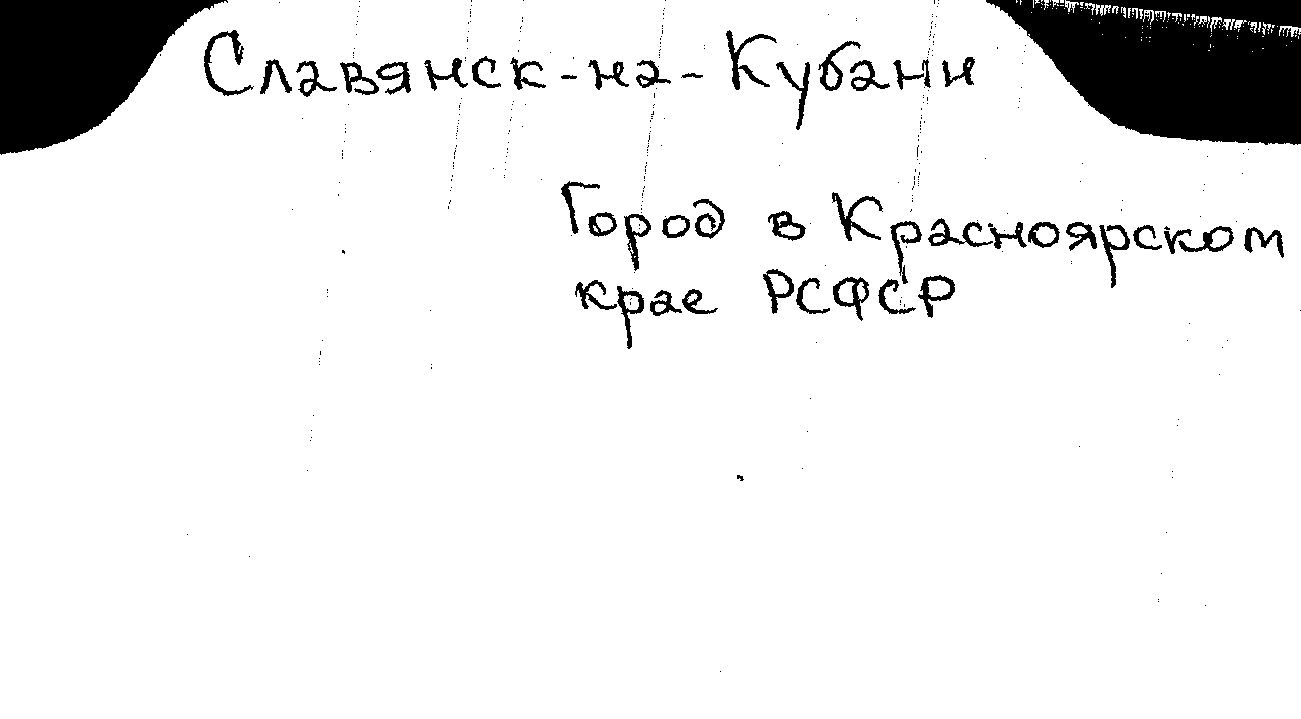 Славянск-на-Кубани
Город в Красноярском
крае РСФСР